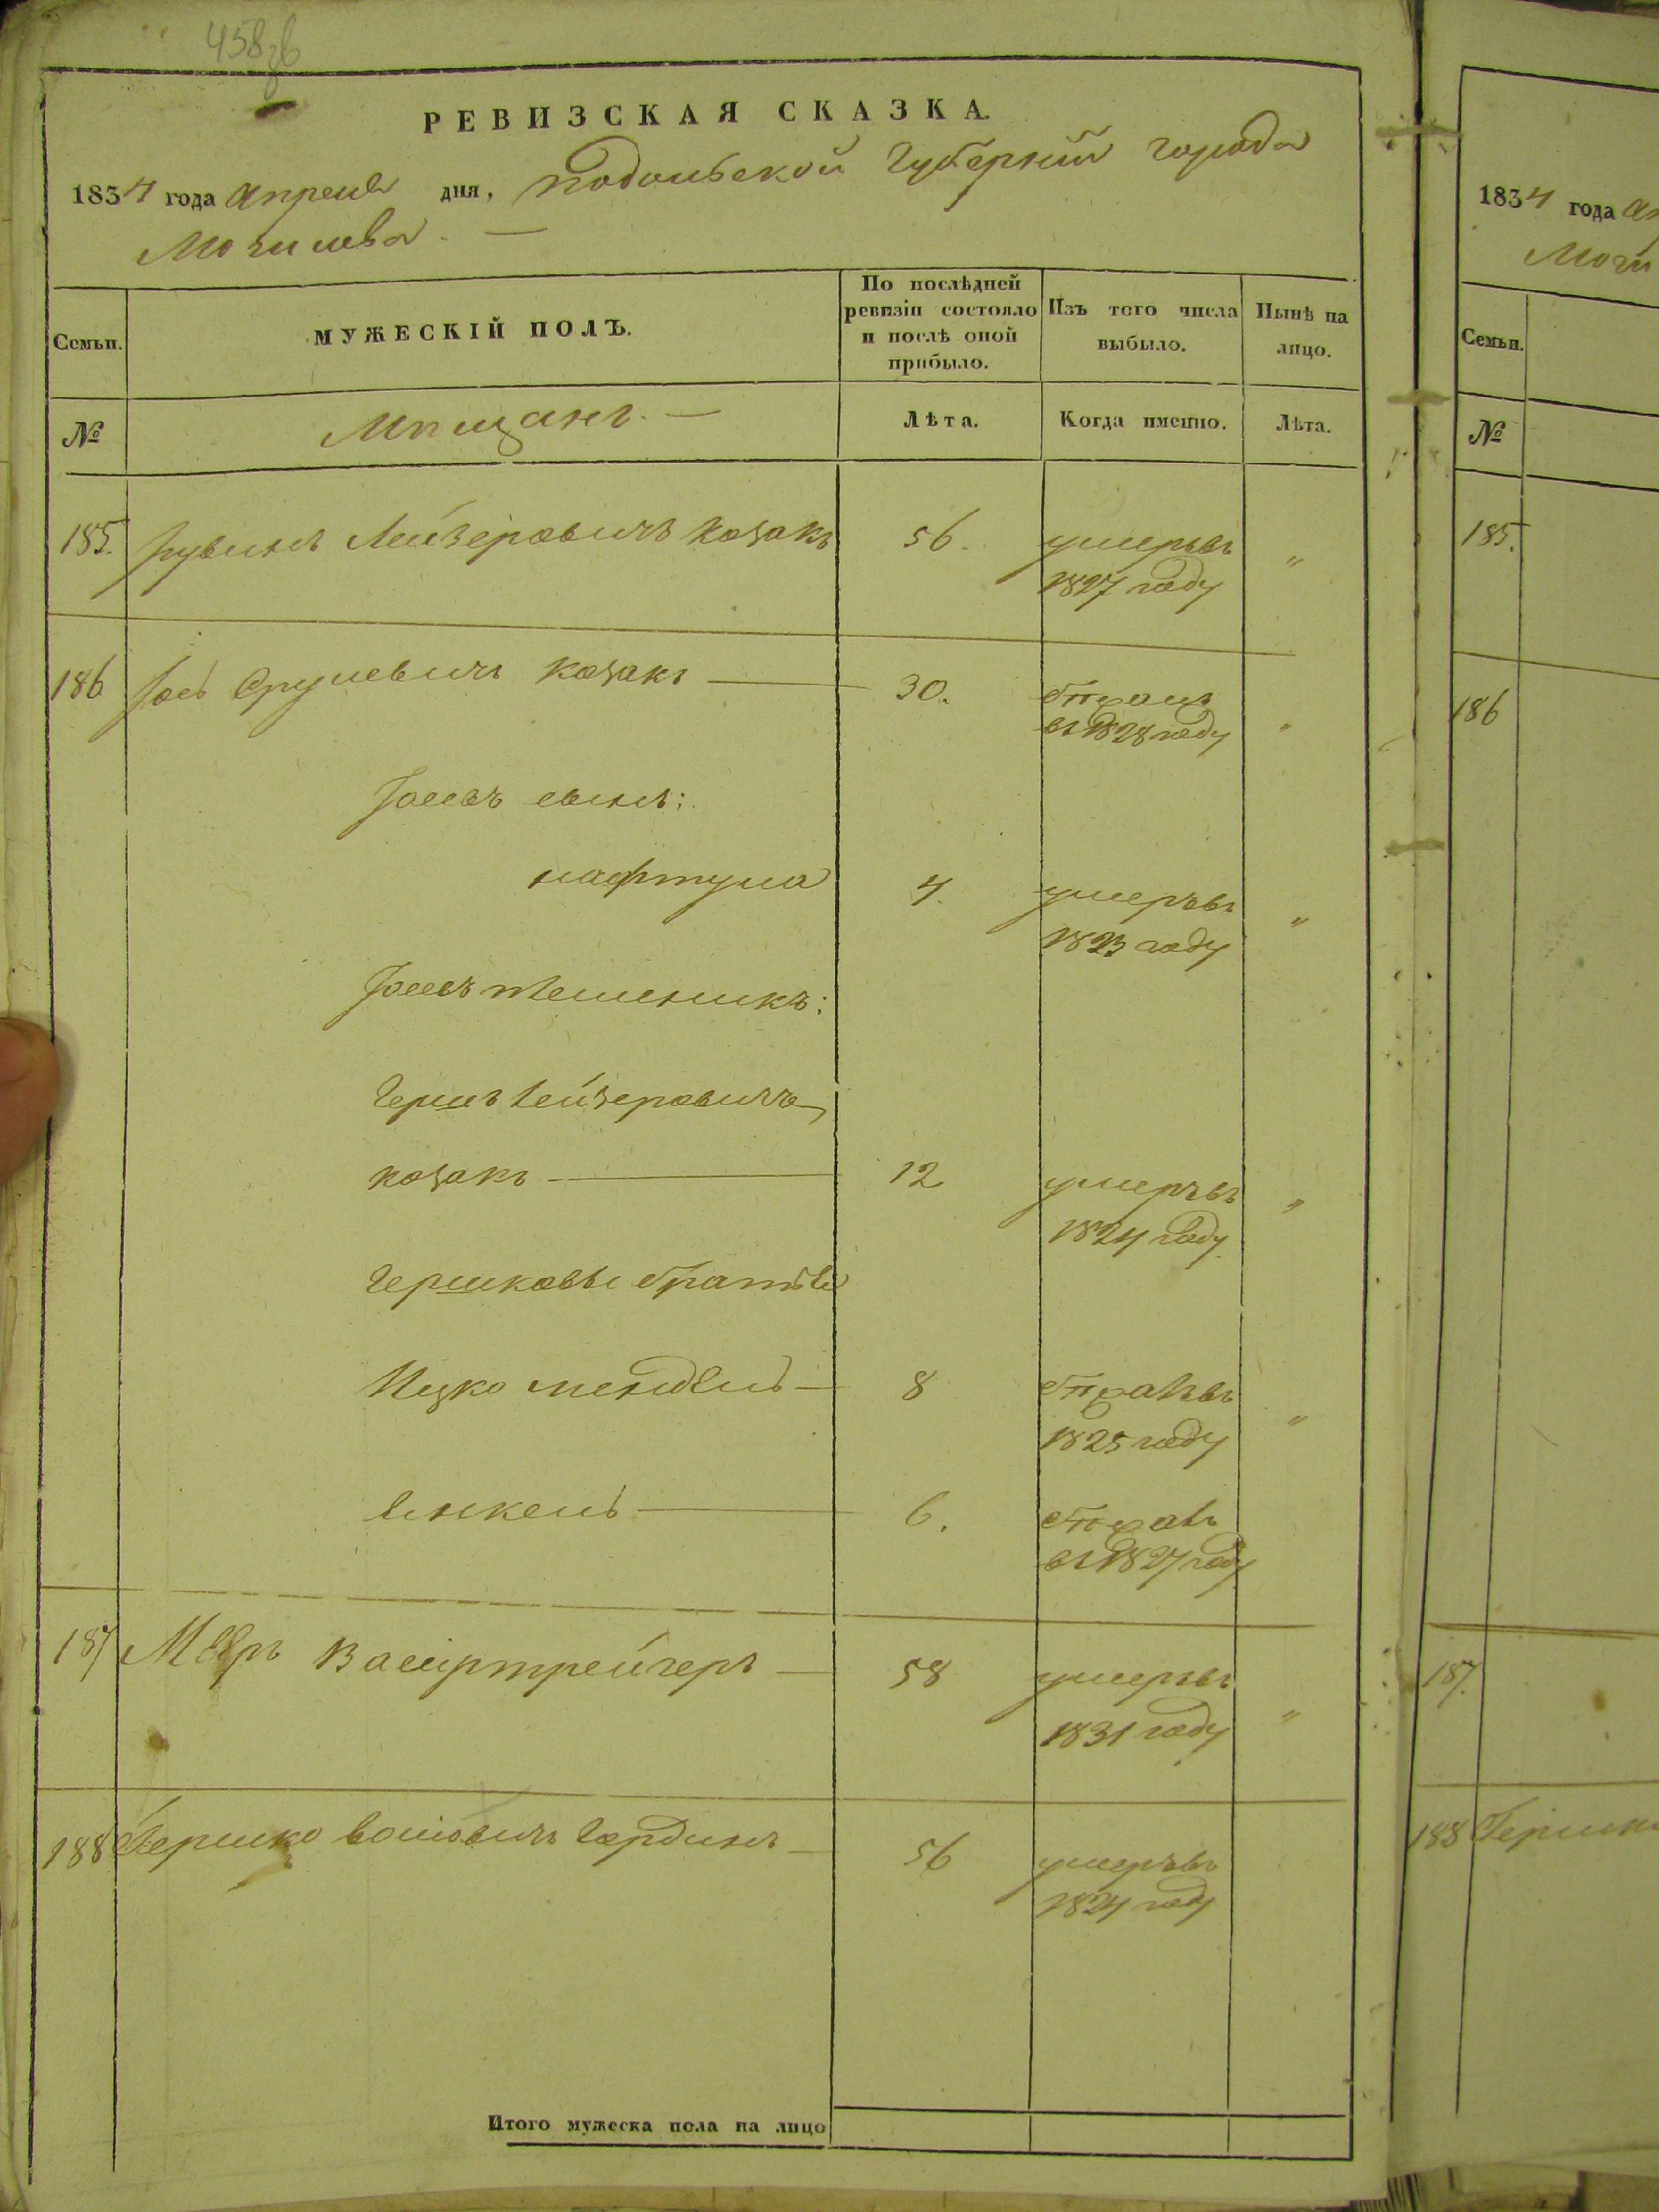 458
РЕВИЗСКАЯ СКАЗКА.
1834 года апреля дня, Подольской Губернии города
Могилева. —
Семьи.
МУЖЕСКІЙ ПОЛЪ.
По послѣдней ревизіи состояло и послѣ оной прибыло.
Изъ того числа выбыло.
Нынѣ на лицо.
№
Мѣщанъ. —
Лѣта.
Когда именно.
Лѣта.
185. Рувинъ Лейзеровичъ Козакъ 56. умеръ въ "
1827 году
186 Іось Срулевичъ Козакъ — 30.
въ 1828 году "
Іосевъ сынъ:
Нафтула 4. умеръ въ "
1823 году
Іосевъ племеникъ:
Гершъ Лейзеровичъ
Козакъ — 12 умеръ въ "
1824 году
Гершковы братья
Ицко Мендель — 8 въ "
1825 году
Янкель — 6.
въ 1827 году
187 Меер Васертрейгеръ — 58 умеръ въ "
1831 году
188 Гершко Волiовичъ Гординъ — 56 умеръ въ
1824 году
Итого мужеска пола на лицо
1834 года ап
Моги
Семьи.
№
185.
186
187.
188 Гершк